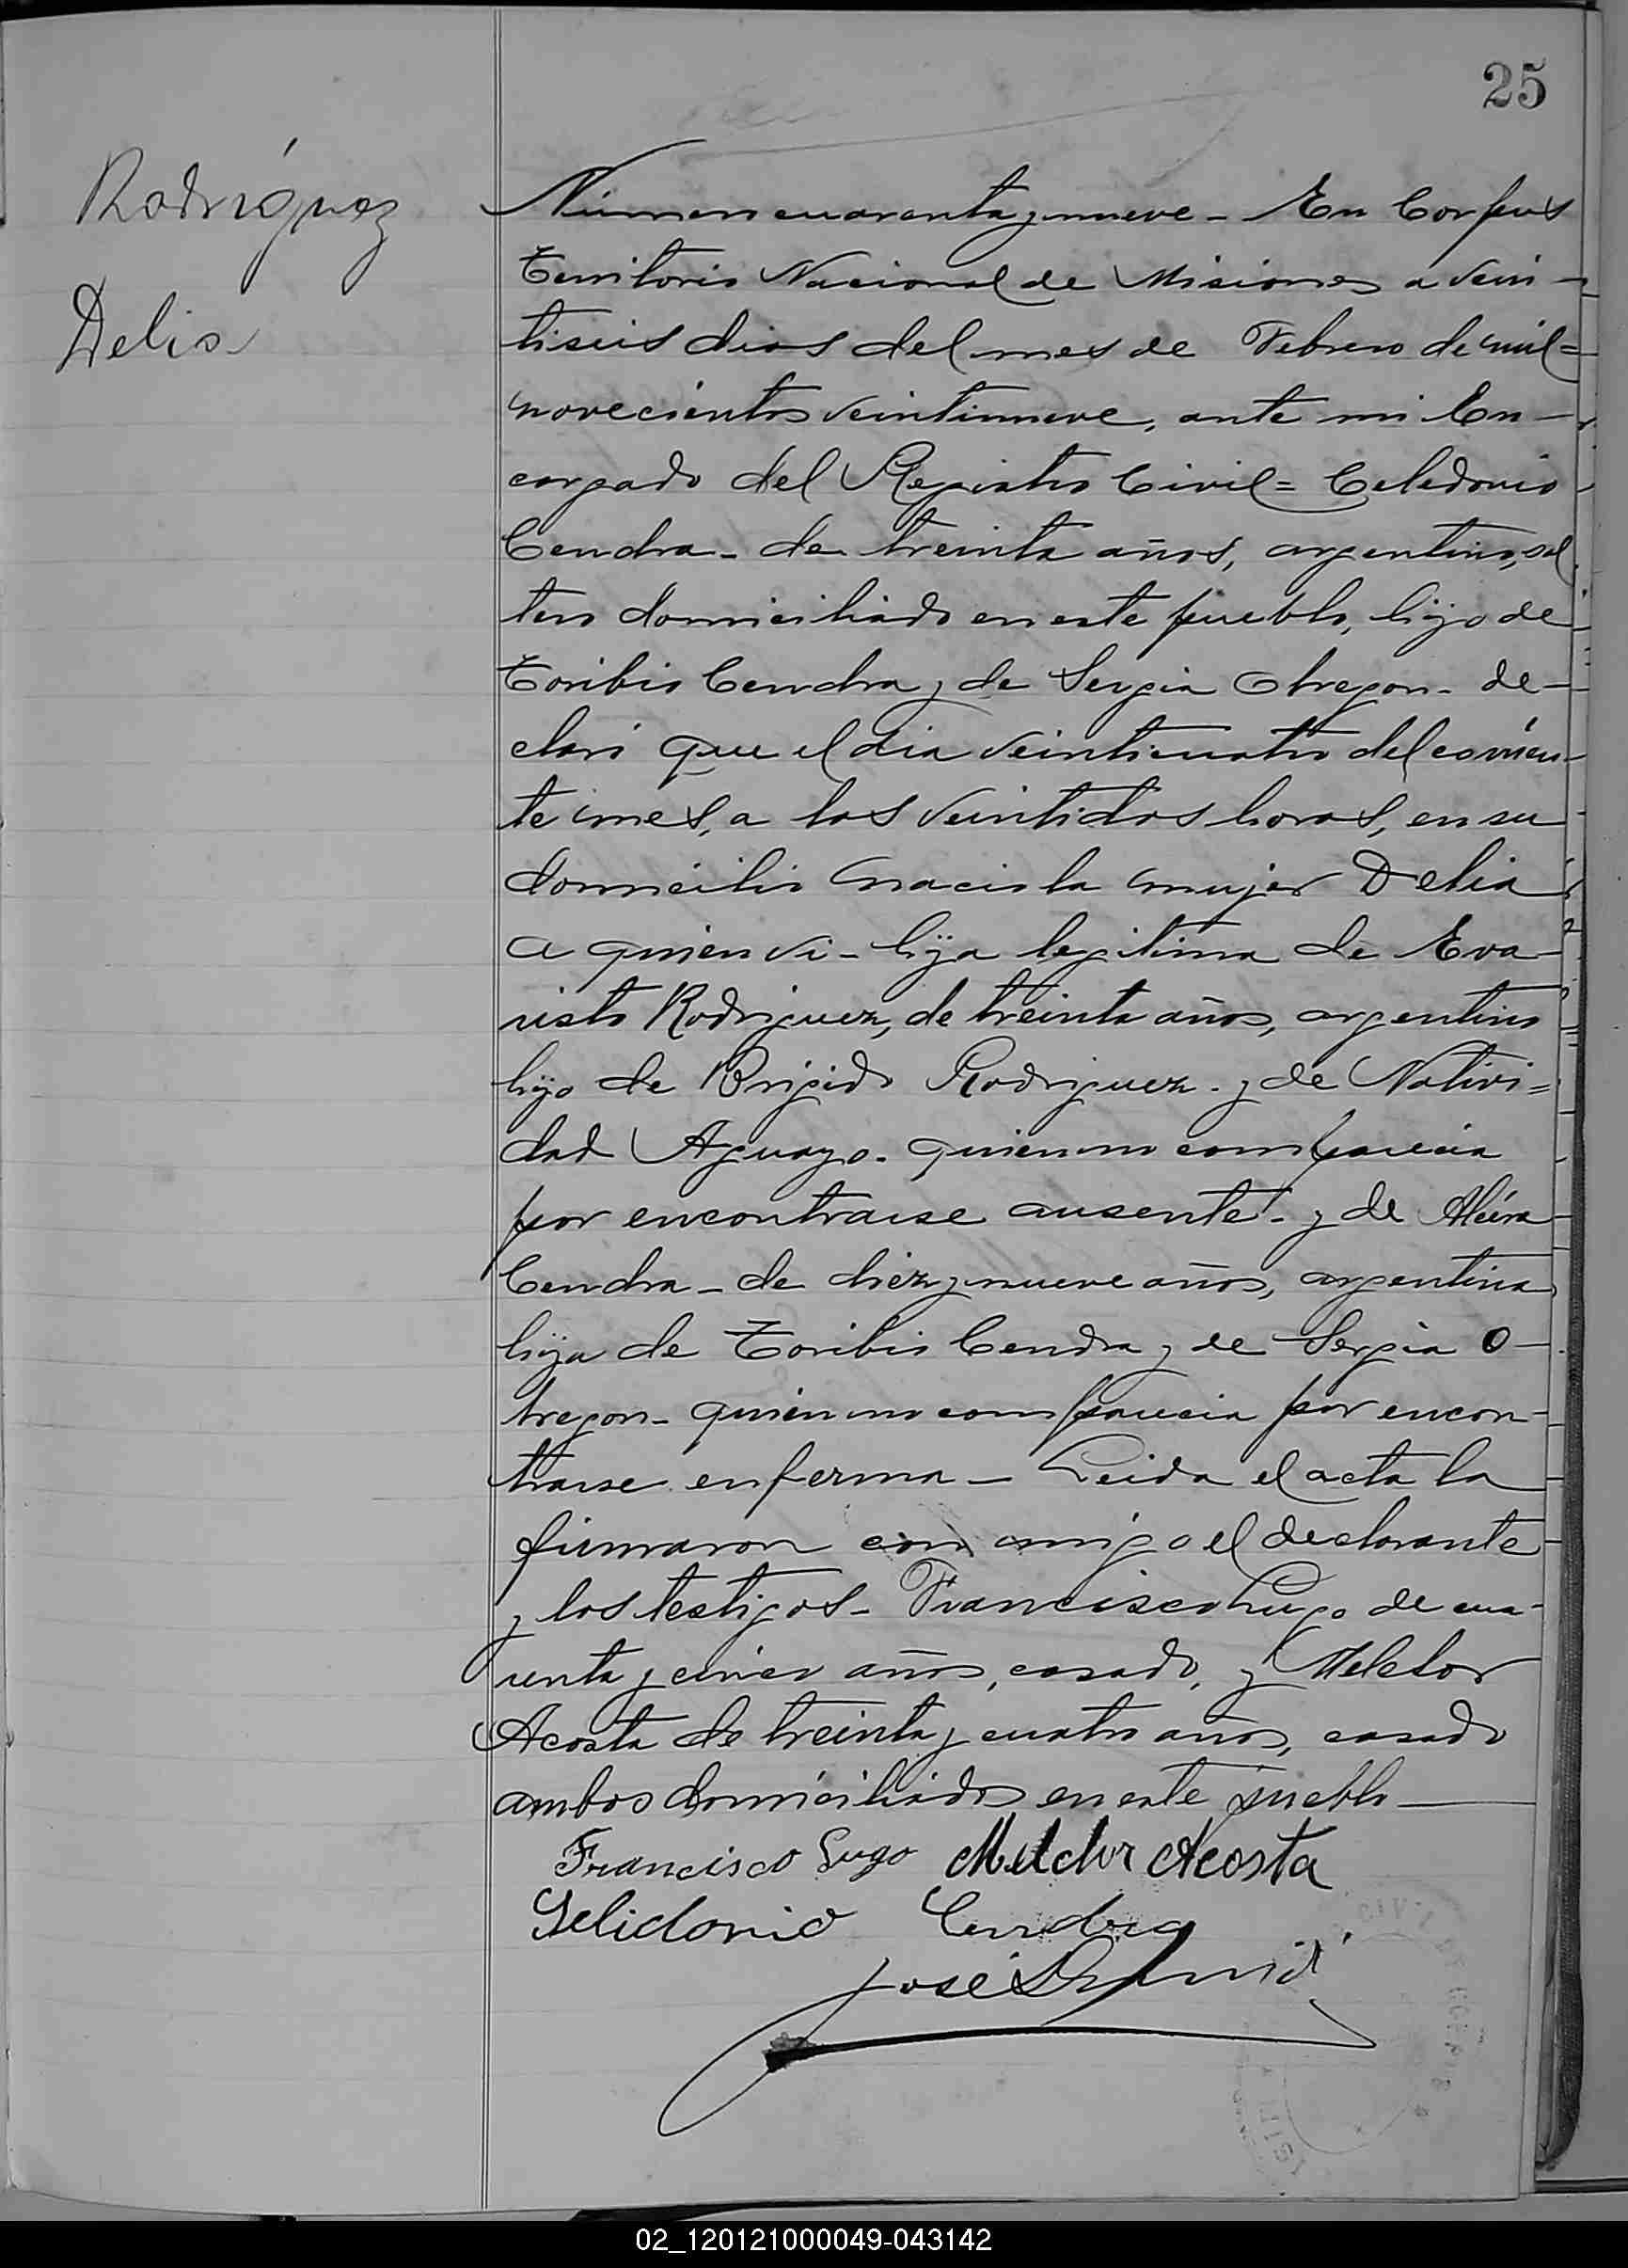 25
Rodríguez
Delia
Número cuarenta y nueve - En Corpus
Territorio Nacional de Misiones a vein-
tiseis dias del mes de Febrero de mil=
novecientos veintinueve, ante mi En-
cargado del Registro Civil = Celedonio
Cendra - de treinta años, argentino, sol
tero domiciliado en este pueblo, hijo de
Toribio Cendra y de Sergia Obregon - de-
claró que el dia veinticuatro del corrien-
te mes, a las veintidos horas, en su
domicilio nació la mujer Delia
a quien vi - hija legitima de Eva-
risto Rodriguez, de treinta años, argentino
hijo de Brigido Rodriguez - y de Nativi=
dad Aguayo - quien no comparecia
por encontrarse ausente - y de Alcira
Cendra - de diez y nueve años, argentina
hija de Toribio Cendra y de Sergia O-
bregon - quien no comparecia por encon-
trarse enferma - Leida el acta la
firmaron con migo el declarante
y los testigos - Francisco Lugo de cua-
renta y cinco años, casado, y Melchor
Acosta de treinta y cuatro años, casado
ambos domiciliados en este pueblo
Francisco Lugo Melchor Acosta
Selidonio Cendra
José
02_120121000049-043142